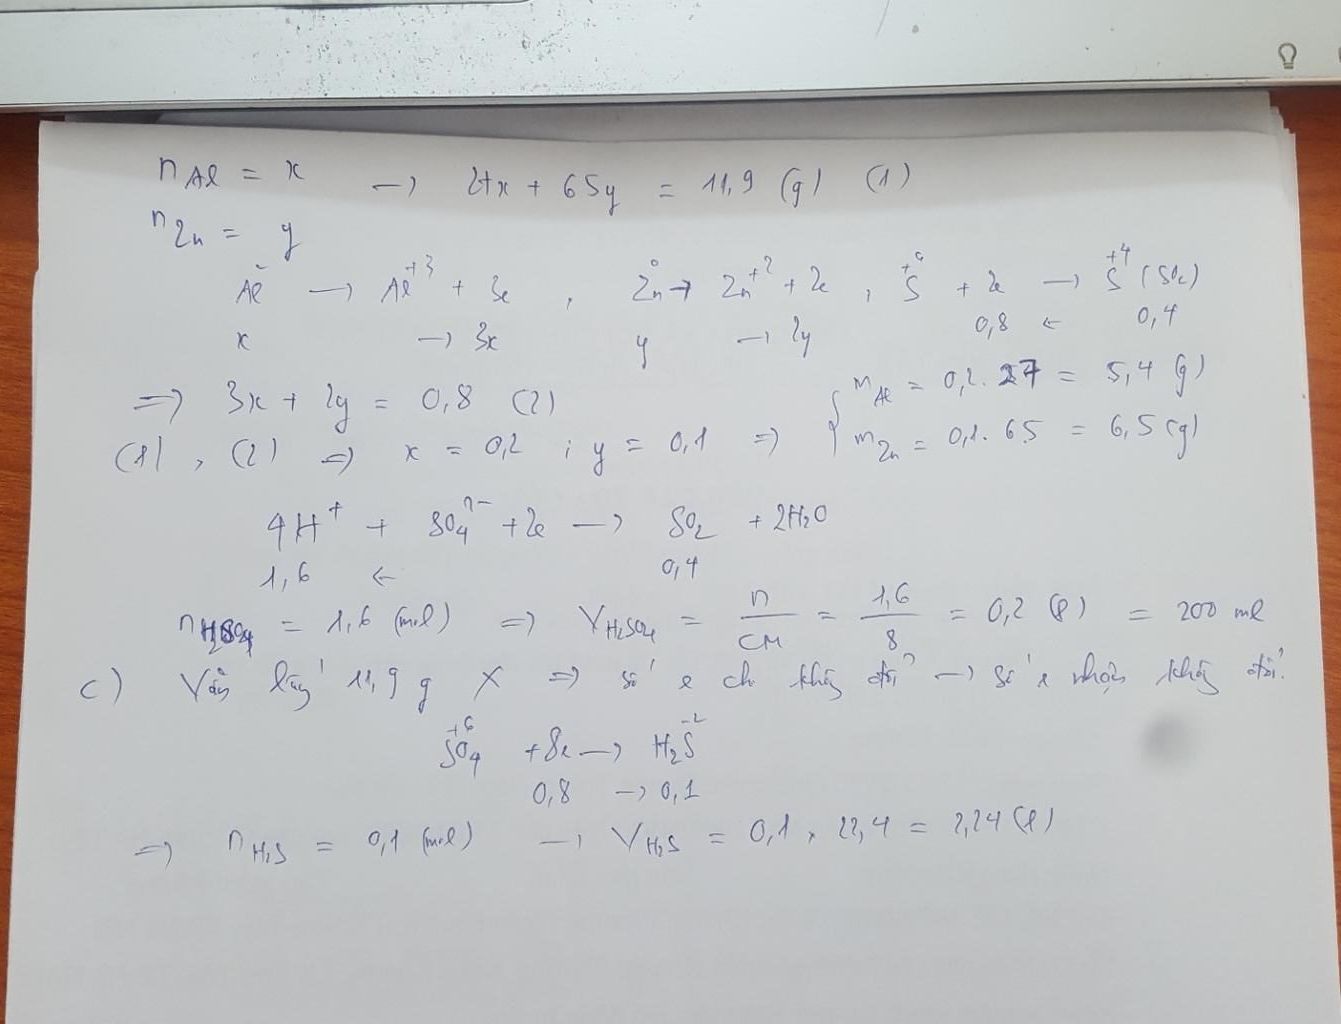 n Al = x → 27x + 65y = 11,9 (g) (1)
n Zn = y
Al⁰ → Al⁺³ + 3e , Zn⁰ → Zn⁺² + 2e , S⁺⁶ + 2e → S⁺⁴ (SO₂)
x → 3x y → 2y 0,8 ← 0,4
⇒ 3x + 2y = 0,8 (2) { m Al = 0,2. 27 = 5,4 (g)
(1) , (2) ⇒ x = 0,2 ; y = 0,1 ⇒ m Zn = 0,1. 65 = 6,5 (g)
4H⁺ + SO₄²⁻ + 2e → SO₂ + 2H₂O
1,6 ← 0,4
n H₂SO₄ = 1,6 (mol) ⇒ V H₂SO₄ = n/CM = 1,6/8 = 0,2 (l) = 200 ml
c) Vẫn lấy 11,9 g X ⇒ số e cho không đổi → số e nhận không đổi.
S⁺⁶O₄ + 8e → H₂S⁻²
0,8 → 0,1
⇒ n H₂S = 0,1 (mol) → V H₂S = 0,1 × 22,4 = 2,24 (l)